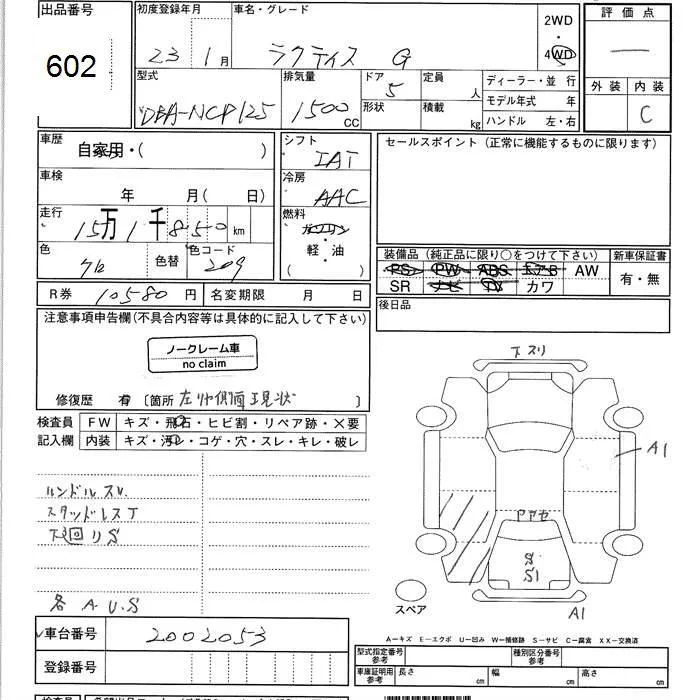 出品番号
602
初度登録年月
23年 1月
車名・グレード
ラクティス G
2WD
・
4WD
評価点
―
外装 内装
C
型式
DBA-NCP125
排気量
1500 CC
ドア
5
形状
定員
人
積載
kg
ディーラー・並行
モデル年式 年
ハンドル 左・右
車歴
自家用・( )
車検
年 月( 日)
走行
15万1千850 km
色
色替
色コード
209
シフト
IAT
冷房
AAC
燃料
ガソリン
・
軽・油
( )
セールスポイント (正常に機能するものに限ります)
装備品 (純正品に限り○をつけて下さい)
PS PW ABS エアB AW
SR ナビ TV カワ
新車保証書
有・無
R券 10580 円
名変期限 月 日
後日品
注意事項申告欄(不具合内容等は具体的に記入して下さい)
ノークレーム車
no claim
修復歴 有 〔箇所 左リヤ側面現状 〕
検査員
記入欄
FW キズ・飛石・ヒビ割・リペア跡・×要
内装 キズ・汚レ・コゲ・穴・スレ・キレ・破レ
ハンドルスレ
スタッドレスT
下回リS
各 A.U.S
下スリ
A1
S
S1
A1
スペア
A-キズ E-エクボ U-凹み W-補修跡 S-サビ C-腐食 XX-交換済
車台番号 2002053
登録番号
型式指定番号
参考
種別区分番号
参考
車庫証明用
参考
長さ cm
幅 cm
高さ cm